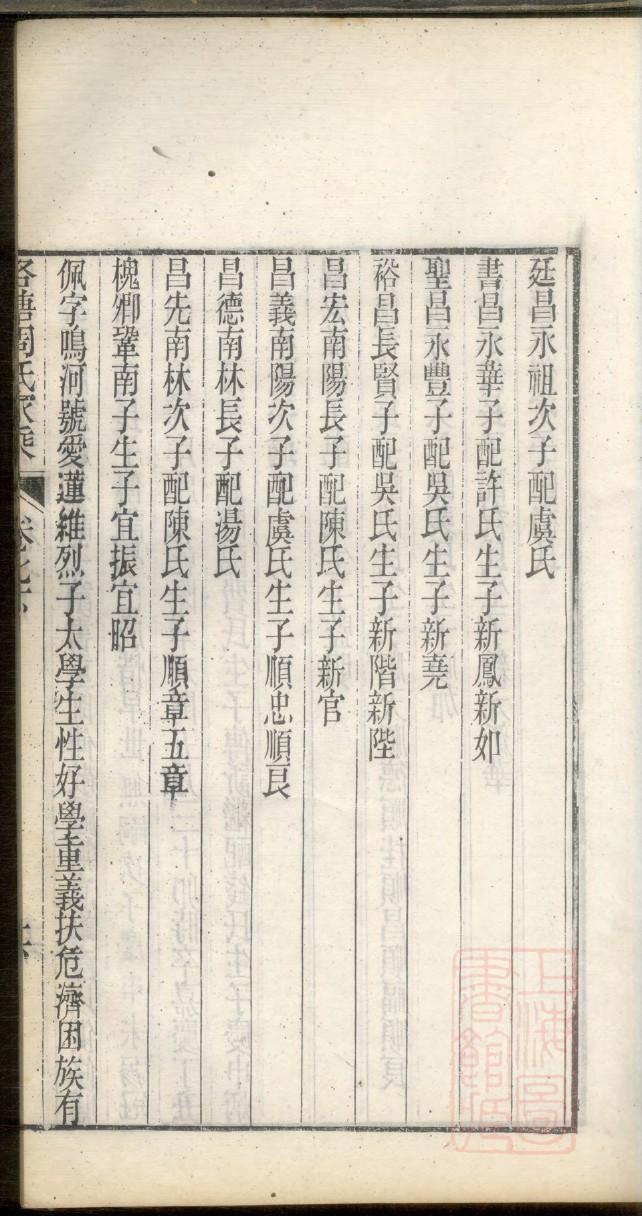 廷昌永祖次子配虞氏
書昌永華子配許氏生子新鳳新如
聖昌永豐子配吳氏生子新堯
裕昌長賢子配吳氏生子新階新陛
昌宏南陽長子配陳氏生子新官
昌義南陽次子配虞氏生子順忠順良
昌德南林長子配湯氏
昌先南林次子配陳氏生子順章五章
槐卿鞏南子生子宜振宜昭
佩字鳴河號愛蓮維烈子太學生性好學重義扶危濟困族有
周氏家乘
上海圖書館藏